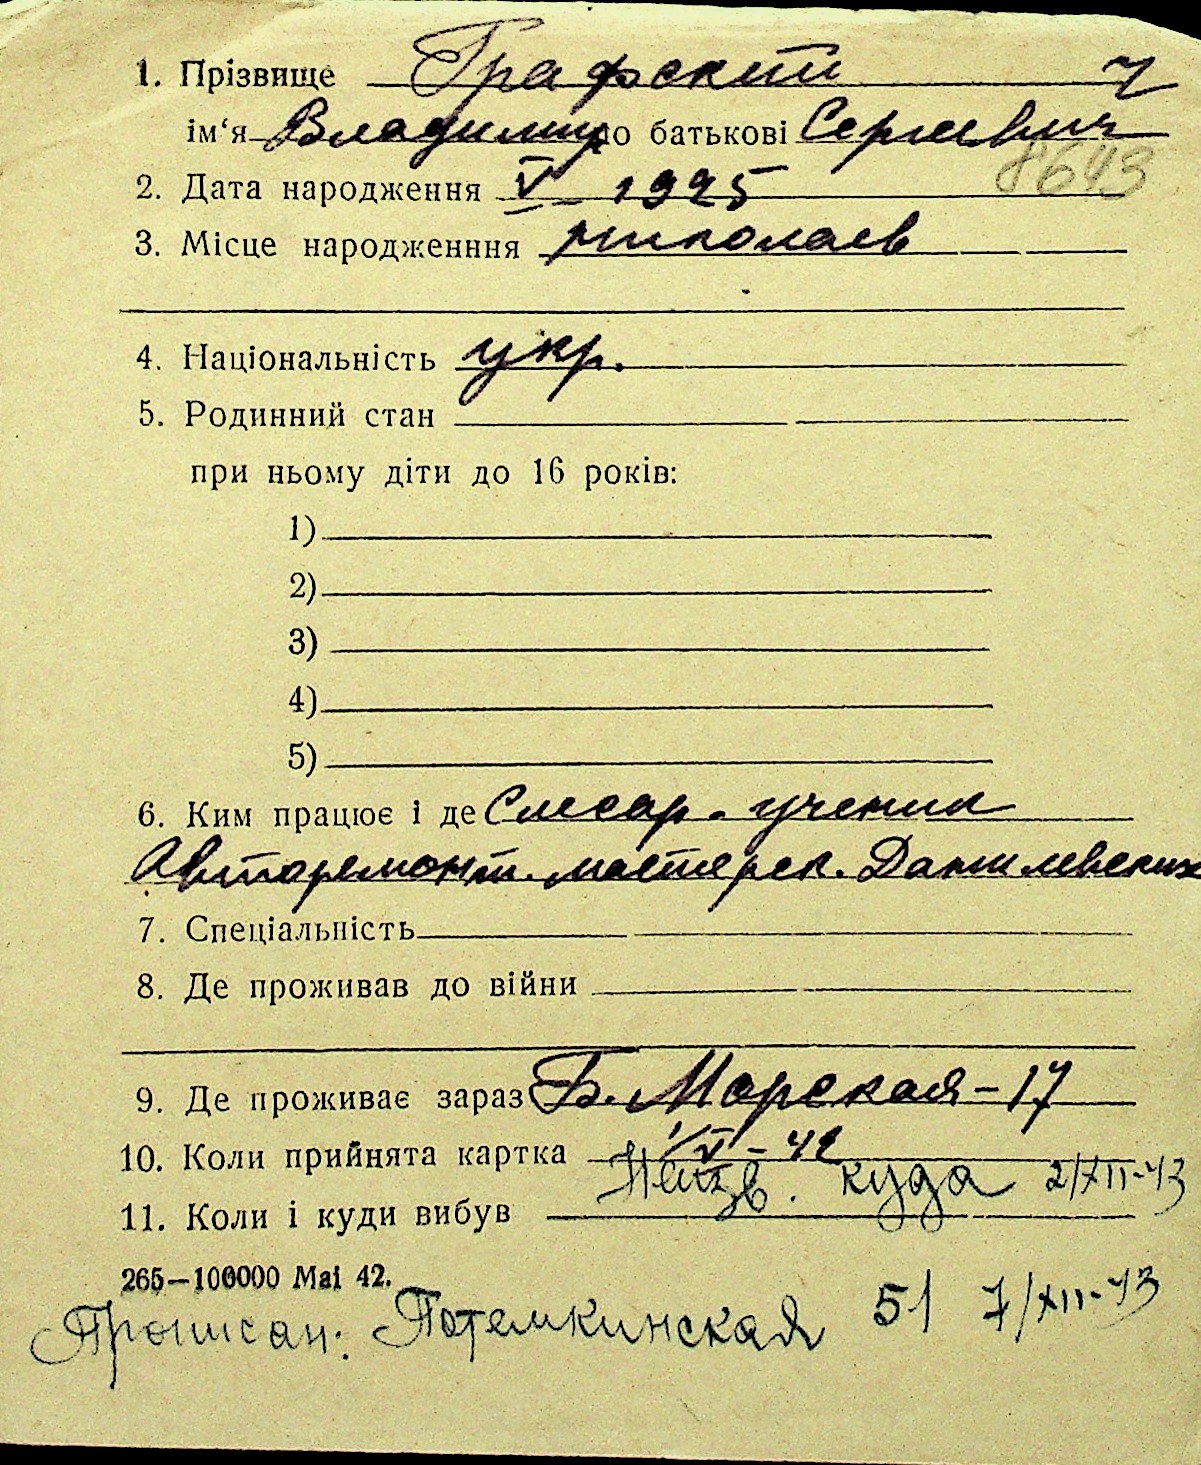 1. Прізвище Графский ч
ім‘я Владимир по батькові Сергеевич
8643
2. Дата народження V – 1925
3. Місце народженння Николаев
4. Національність укр.
5. Родинний стан
при ньому діти до 16 років:
1)
2)
3)
4)
5)
6. Ким працює і де Слесар-ученик
Авторемонт. мастерск. Данилевских
7. Спеціальність
8. Де проживав до війни
9. Де проживає зараз Б. Морская – 17
10. Коли прийнята картка 1/VI – 42
Неизв. куда 2/XII-43
11. Коли і куди вибув
265—100000 Mai 42.
Прописан: Потемкинская 51 7/XII-43